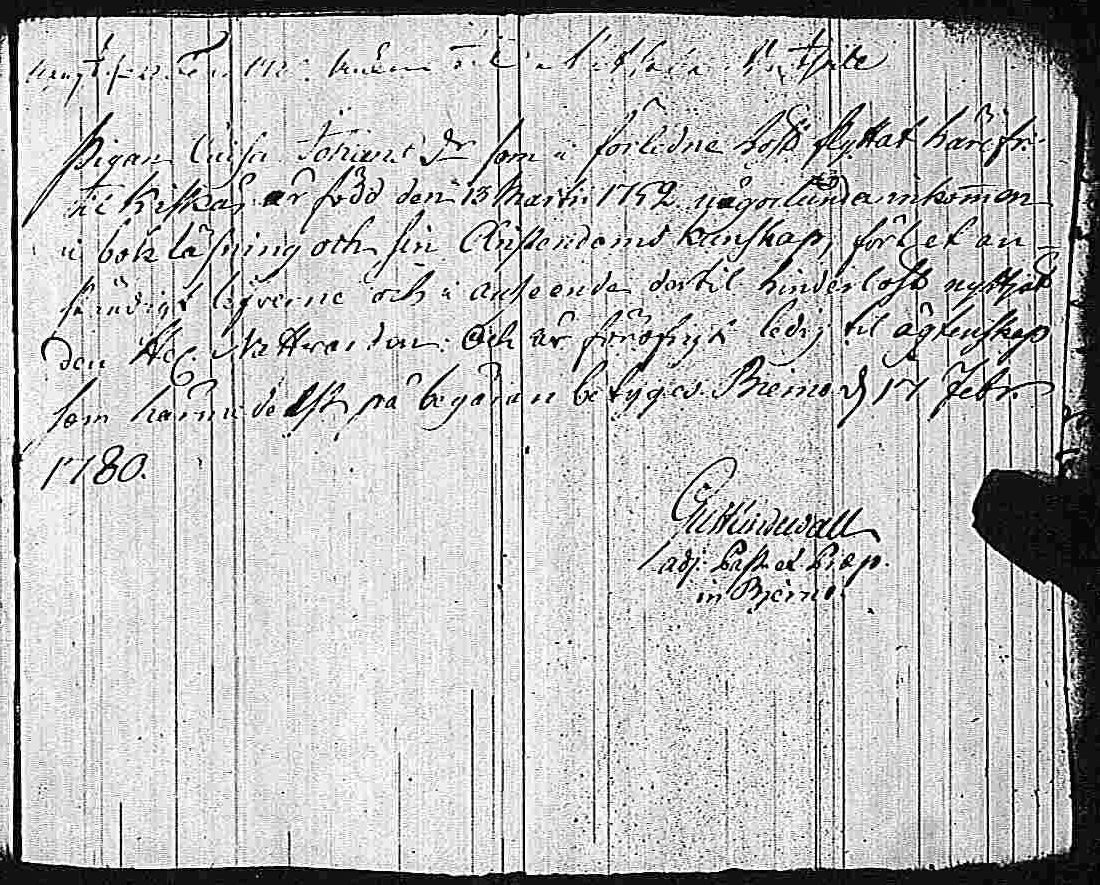 Pigan Caisa Johans dr som i förledne höst flyttat härifr:
til Kiskå, är född den 13 Martii 1752 någorlunda inkom̄en
i bok läsning och sin Christendoms kunskap, fört et an-
ständigt lefverne och i anseende dertil hinderlöst nyttjat
den Hel. Nattvarden: Och är för öfrigt ledig til ägtenskap
som härmedelst på begäran betyges. Bierno d 17 Febr.
1780.
adj. Past. et Præp.
in Bjerno.